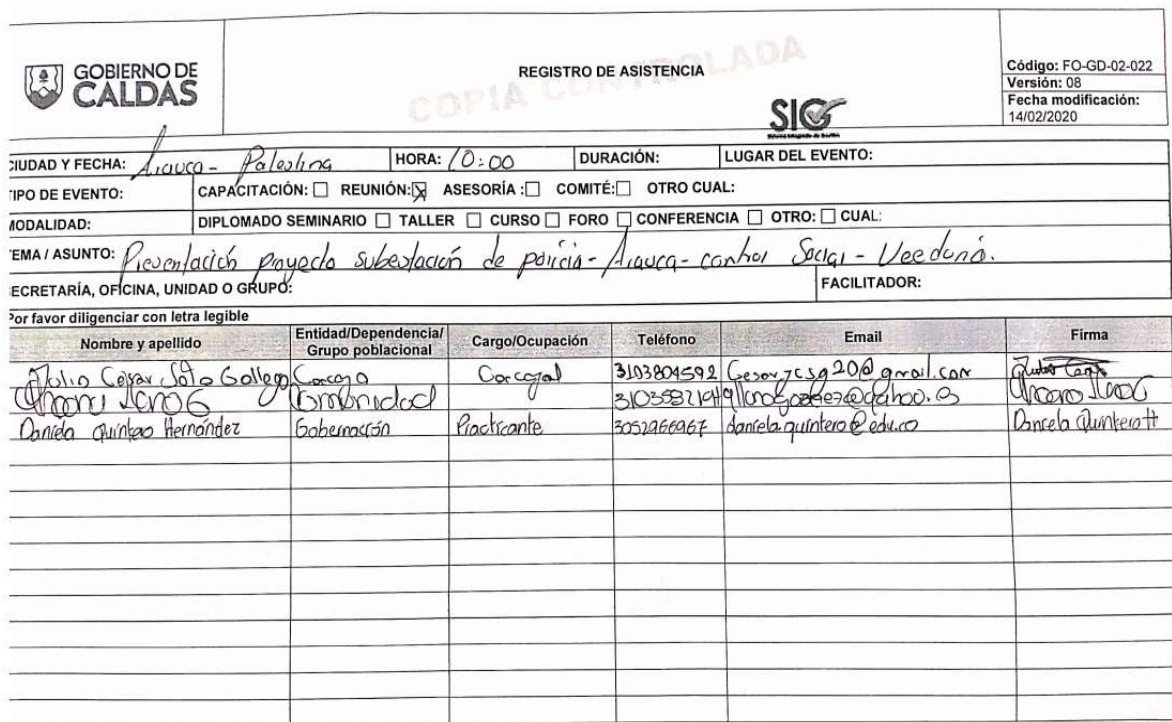 COPIA CONTROLADA
GOBIERNO DE
CALDAS
REGISTRO DE ASISTENCIA
SIG
Código: FO-GD-02-022
Versión: 08
Fecha modificación:
14/02/2020
CIUDAD Y FECHA: Arauca - Palestina HORA: 10:00 DURACIÓN: LUGAR DEL EVENTO:
TIPO DE EVENTO: CAPACITACIÓN: REUNIÓN: X ASESORÍA : COMITÉ: OTRO CUAL:
MODALIDAD: DIPLOMADO SEMINARIO TALLER CURSO FORO CONFERENCIA OTRO: CUAL:
TEMA / ASUNTO: Presentación proyecto subestación de policia - Arauca - control Social - Veeduria.
SECRETARÍA, OFICINA, UNIDAD O GRUPO: FACILITADOR:
Por favor diligenciar con letra legible
Nombre y apellido Entidad/Dependencia/ Grupo poblacional Cargo/Ocupación Teléfono Email Firma
Julio Cesar Soto Gallego Concejo Concejal 3103804592 Cesarjcsg20@gmail.com
Comunidad
Daniela Quintero Hernández Gobernación Practicante 3052966967 daniela.quintero@edu.co Daniela Quintero H